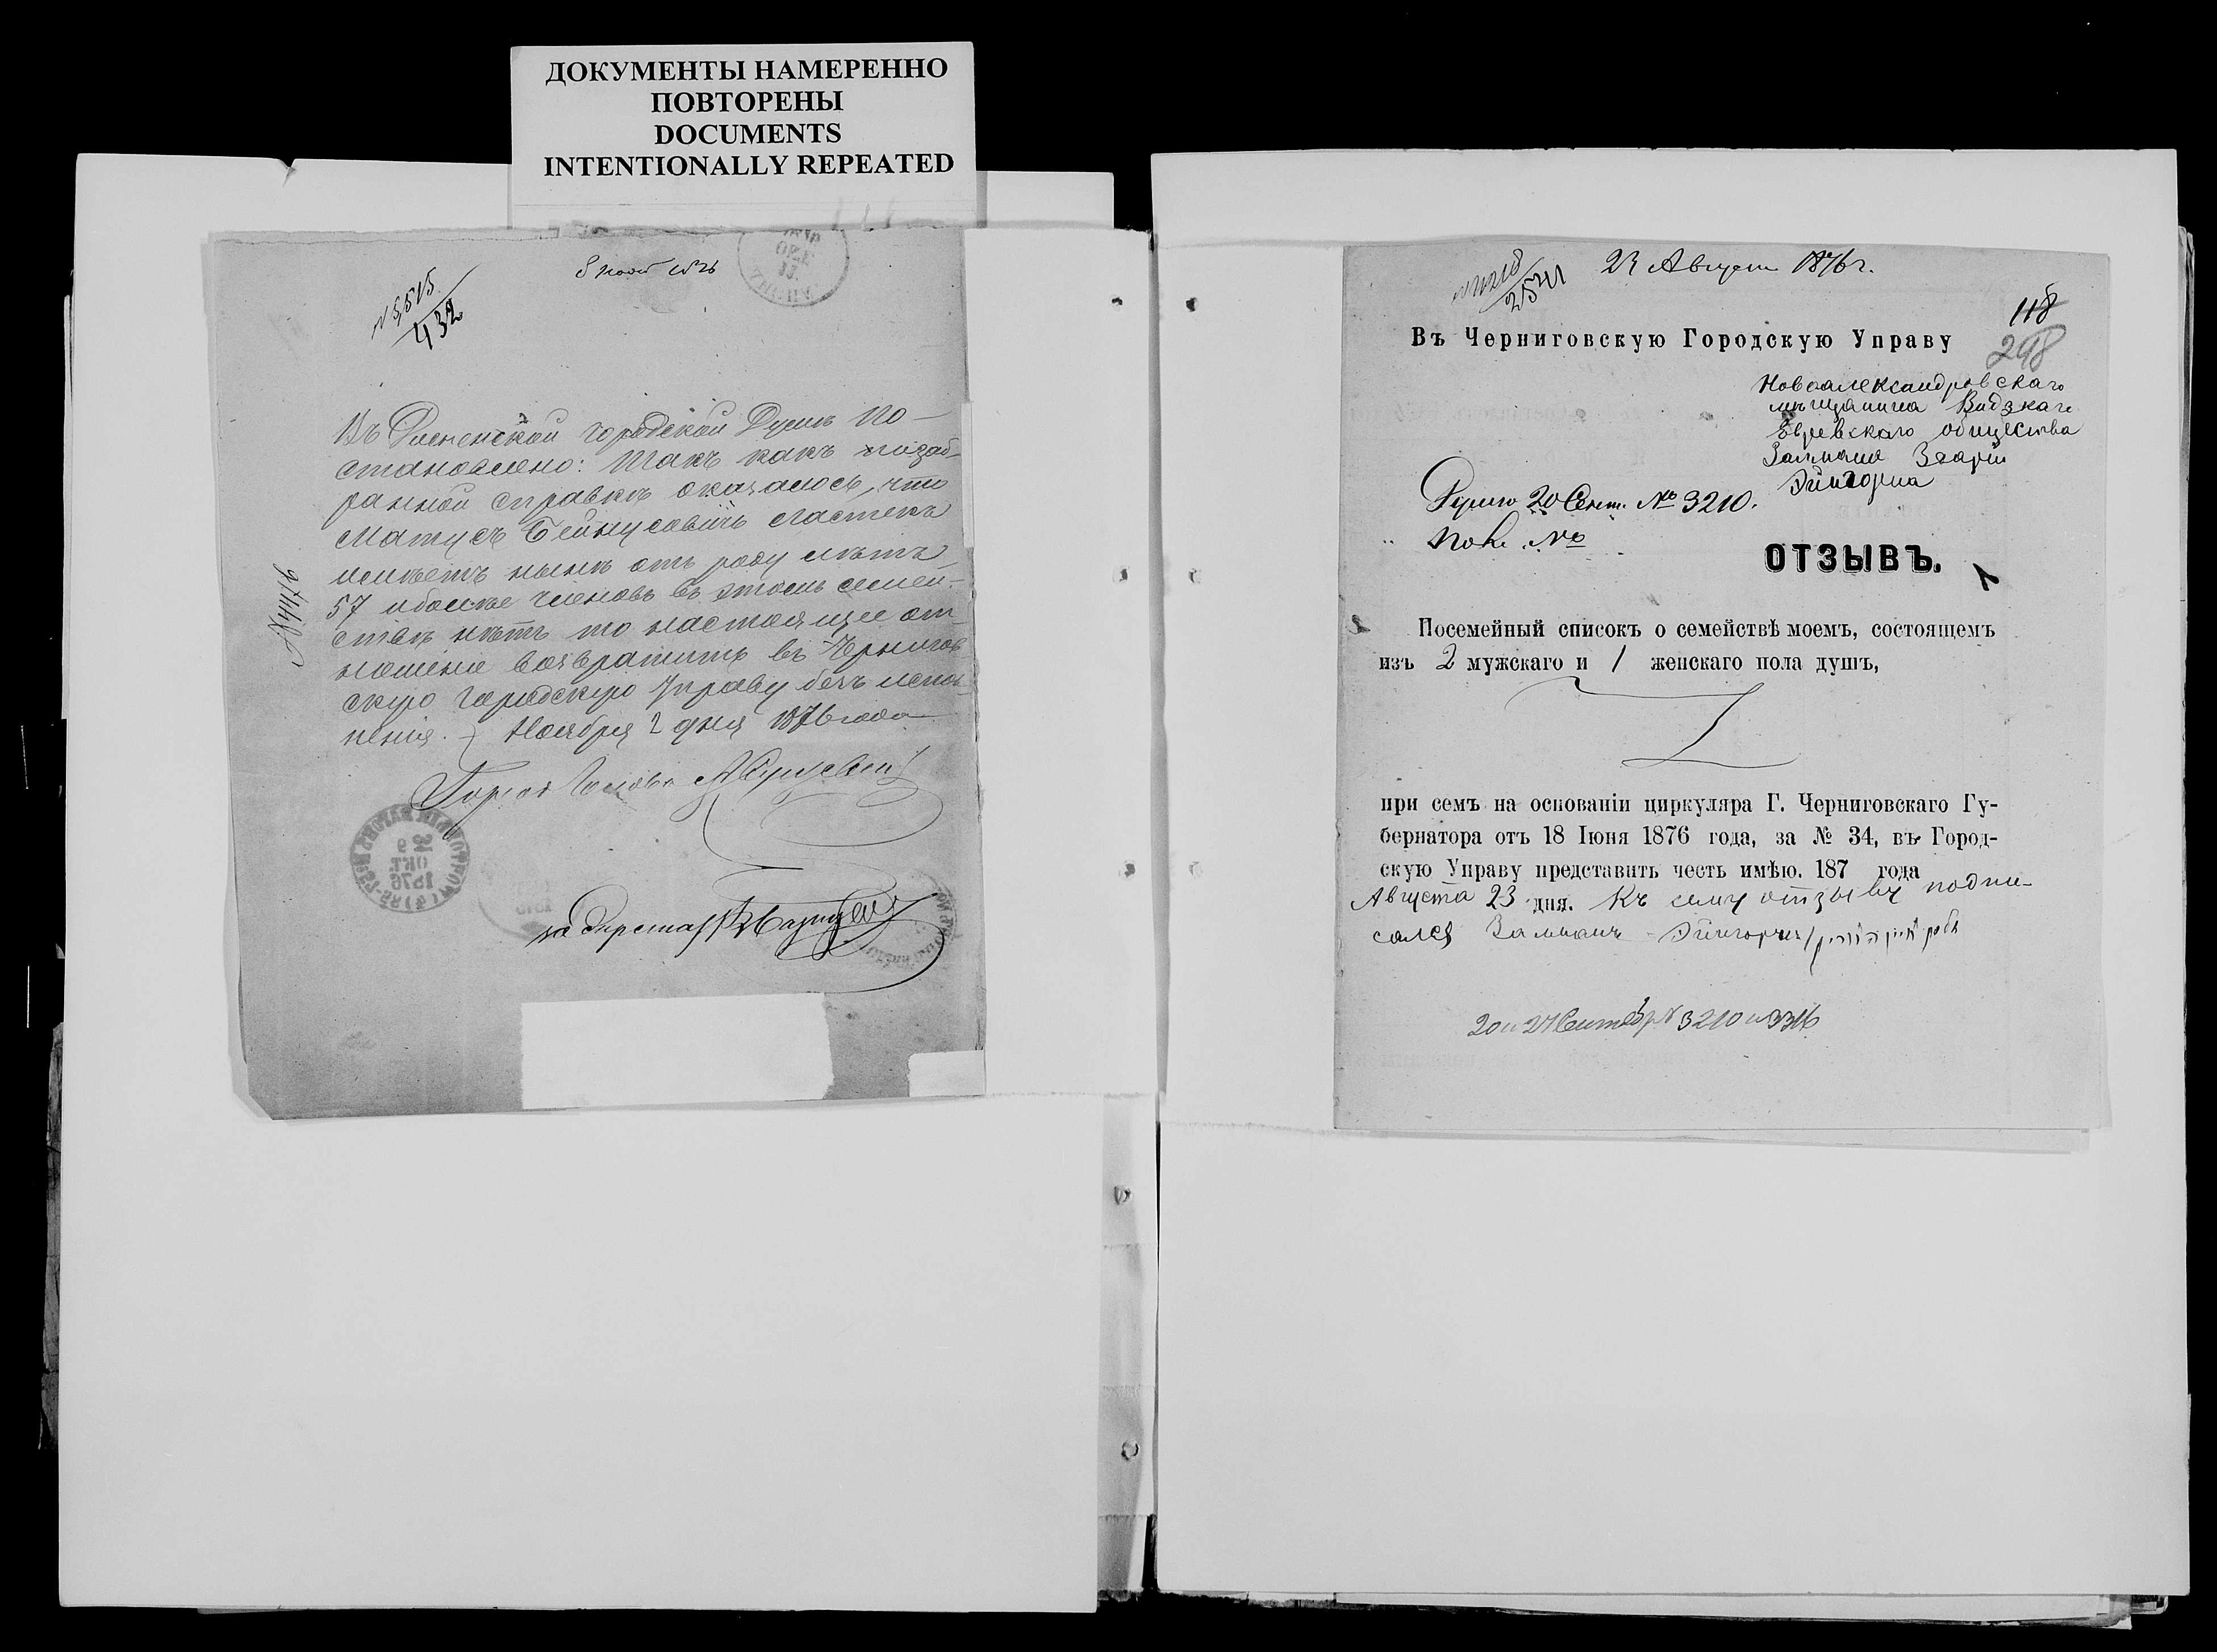 ДОКУМЕНТЫ НАМЕРЕННО
ПОВТОРЕНЫ
DOCUMENTS
INTENTIONALLY REPEATED
432
Въ Дисненской городской Думѣ по-
становлено: Такъ какъ
справкѣ оказалось, что
Матусъ Бейнусовичъ
имѣетъ нынѣ отъ роду лѣтъ
57 и болѣе членовъ въ этомъ семей-
ствѣ нѣтъ то настоящее от-
ношеніе возвратить въ Чернигов
скую Городскую Управу безъ испол-
ненія. Ноября 2 дня 1876 года
Голова
ОКТ.
1876
23 Август 1876 г.
2541
118
298
Въ Черниговскую Городскую Управу
Новоалександровскаго
мѣщанина Видзкаго
Еврейскаго общества
Залмана
Эйнгорна
20 Сент. № 3210.
№
ОТЗЫВЪ.
Посемейный списокъ о семействѣ моемъ, состоящемъ
изъ 2 мужскаго и 1 женскаго пола душъ,
при семъ на основаніи циркуляра Г. Черниговскаго Гу-
бернатора отъ 18 Іюня 1876 года, за № 34, въ Город-
скую Управу представить честь имѣю. 187 года
Августа 23 дня. Къ сему отзыву подпи-
сался Залманъ Эйнгорнъ
20 и 27 Сентября 3210 и 3316